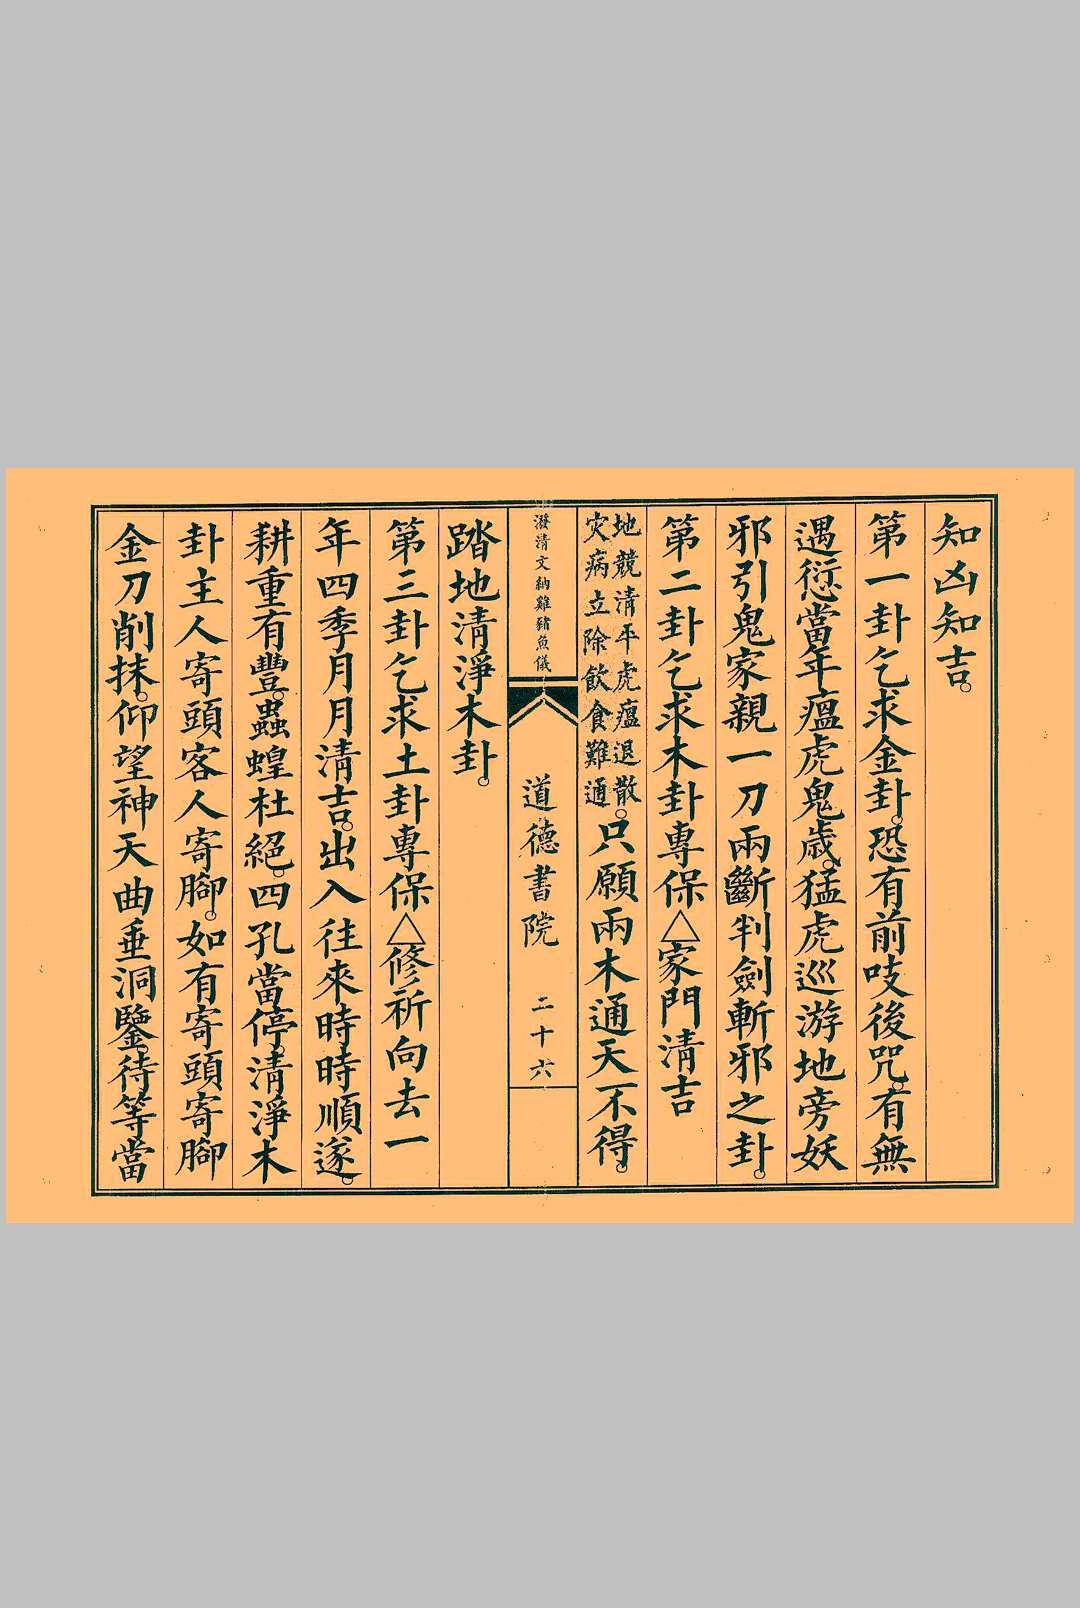 知凶知吉。
第一卦乞求金卦。恐有前吱後咒。有無
遇愆當年瘟虎鬼歲。猛虎巡游地旁妖
邪引鬼家親一刀兩斷判劍斬邪之卦。
第二卦乞求木卦專保△家門清吉
地競清平虎瘟退散。
灾病立除飲食難通
只願兩木通天不得。
潑清文納雞豬魚儀
道德書院
二十六
踏地清淨木卦。
第三卦乞求土卦專保△修祈向去一
年四季月月清吉。出入往來時時順遂。
耕重有豐。蟲蝗杜絕。四孔當停。清淨木
卦主人寄頭客人寄腳。如有寄頭寄腳
金刀削抹。仰望神天曲垂洞鑒。待等當